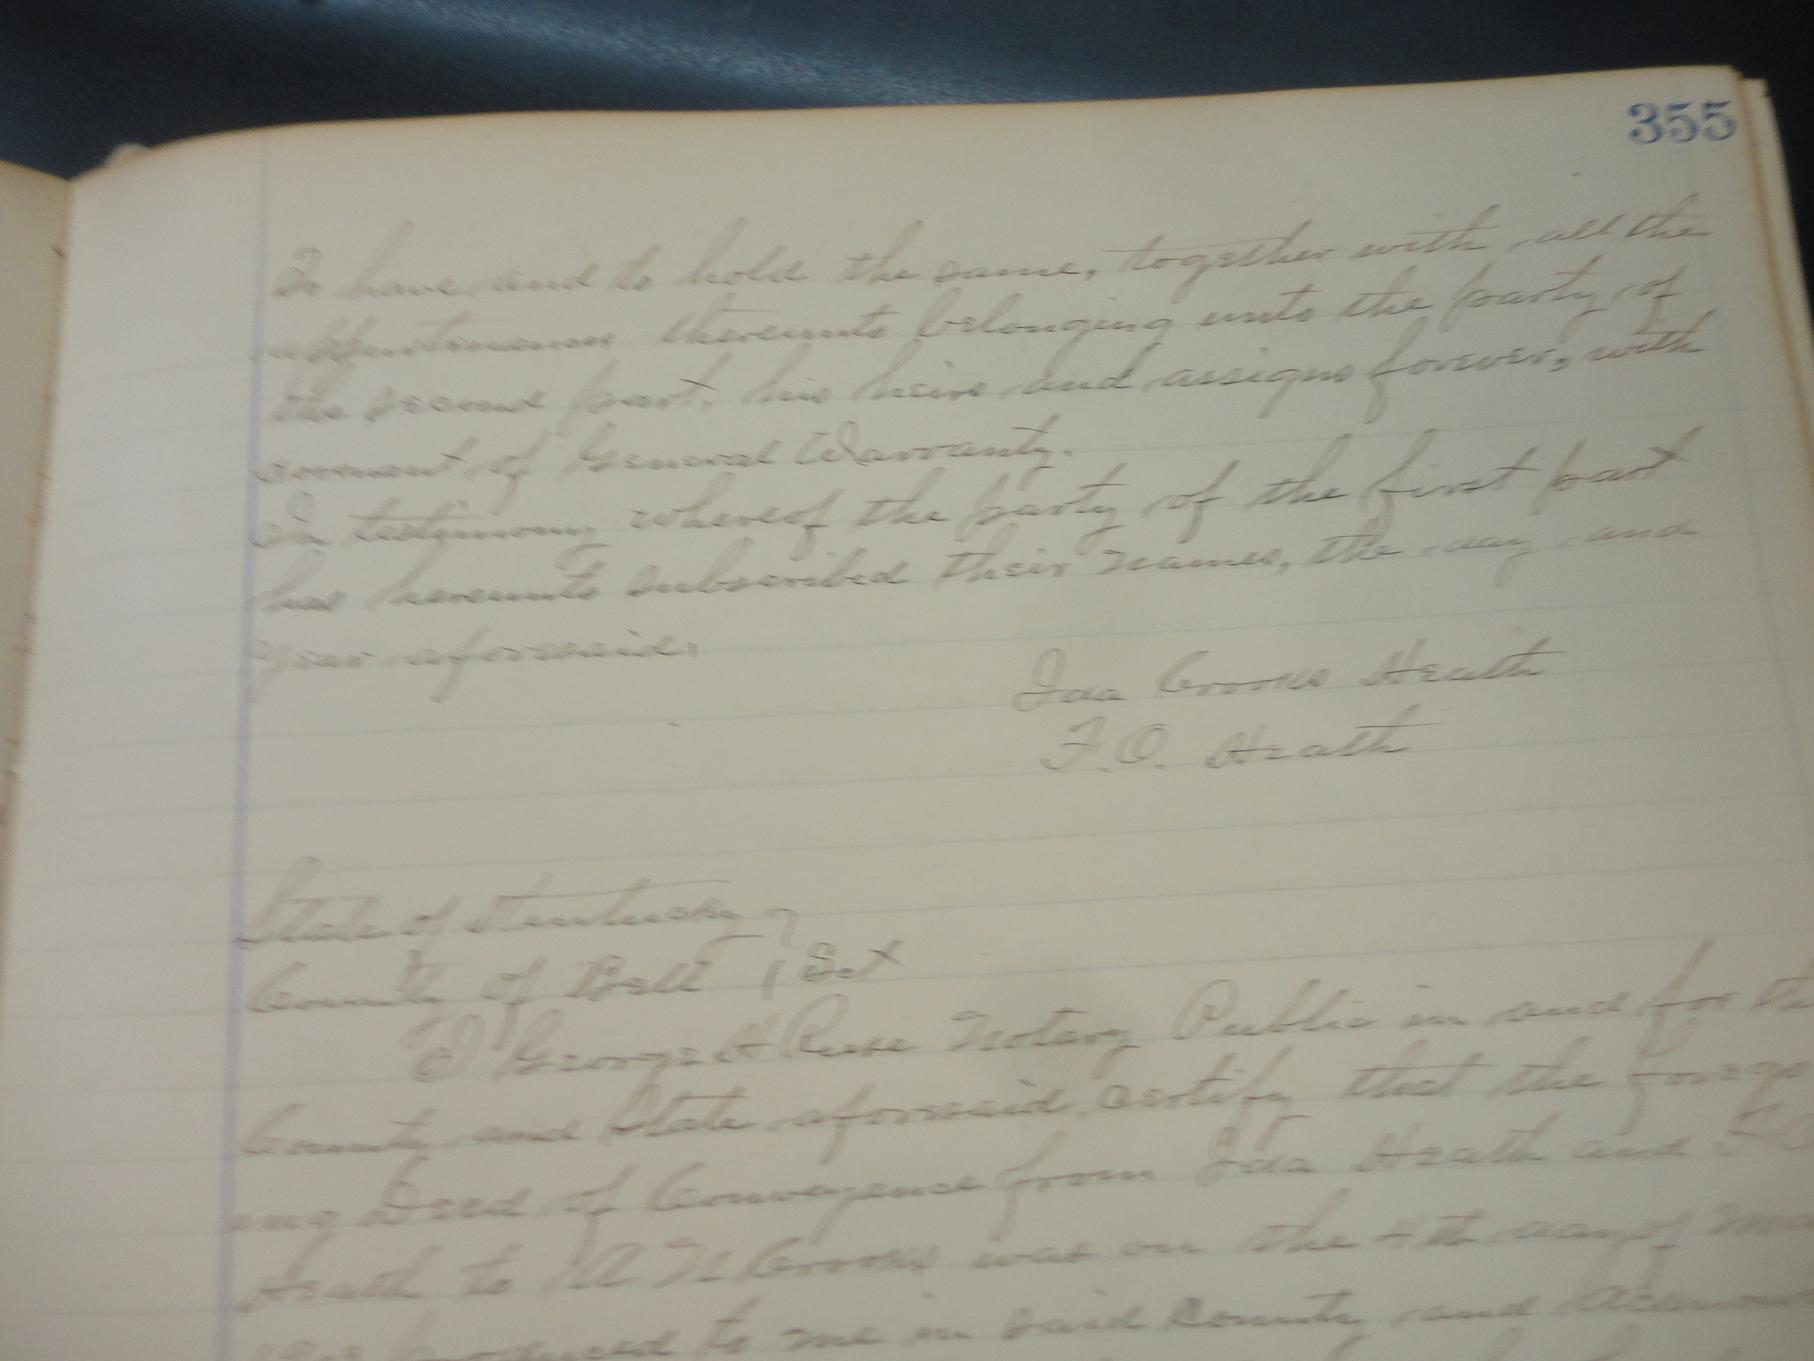 355
To have and to hold the same, together with all the
appurtenances thereunto belonging unto the party of
the second part, his heirs and assigns forever, with
covenant of General Warranty.
In testimony whereof the party of the first part
has hereunto subscribed their names, the day and
year aforesaid.
Ida Crooks Heath
F.O. Heath
State of Kentucky
County of Bell Sct
I George H Notary Public in and for th
County and State aforesaid, certify that the forego
ing Deed of Conveyance from Ida Heath and F O
Heath to Crooks was on the 4th day of Ma
produced to me in said County and acknow